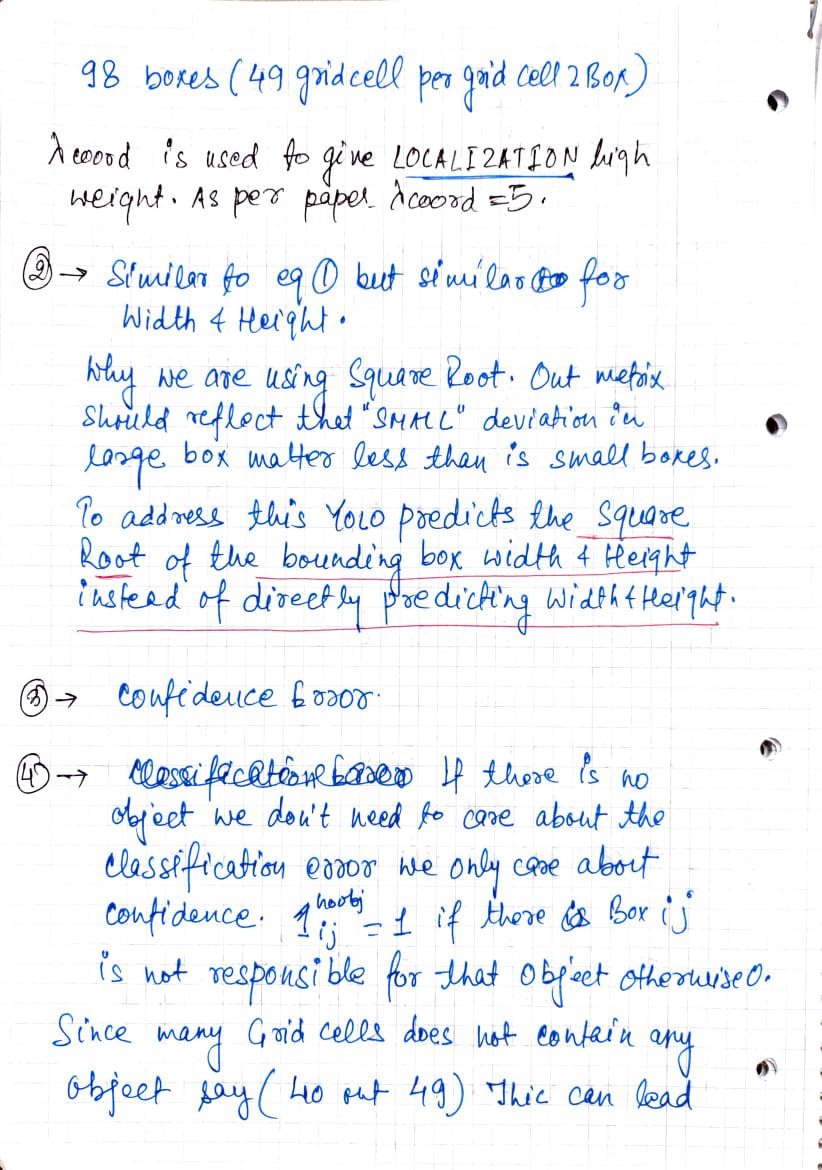 98 boxes (49 gridcell per grid cell 2 Box)
λcoord is used to give LOCALIZATION high
weight. As per paper λcoord = 5.
② → Similar to eq ① but similar for
Width & Height.
Why we are using Square Root. Out metrix
Should reflect that "SMALL" deviation in
large box matter less than is small boxes.
To address this YOLO predicts the Square
Root of the bounding box width & Height
instead of directly predicting Width & Height.
③ → Confidence Error.
④ → If there is no
object we don't need to care about the
Classification error we only care about
Confidence. 1ᵢⱼⁿᵒᵒᵇʲ = 1 if there is Box ij
is not responsible for that Object otherwise 0.
Since many Grid cells does not contain any
object say (40 out 49) This can lead